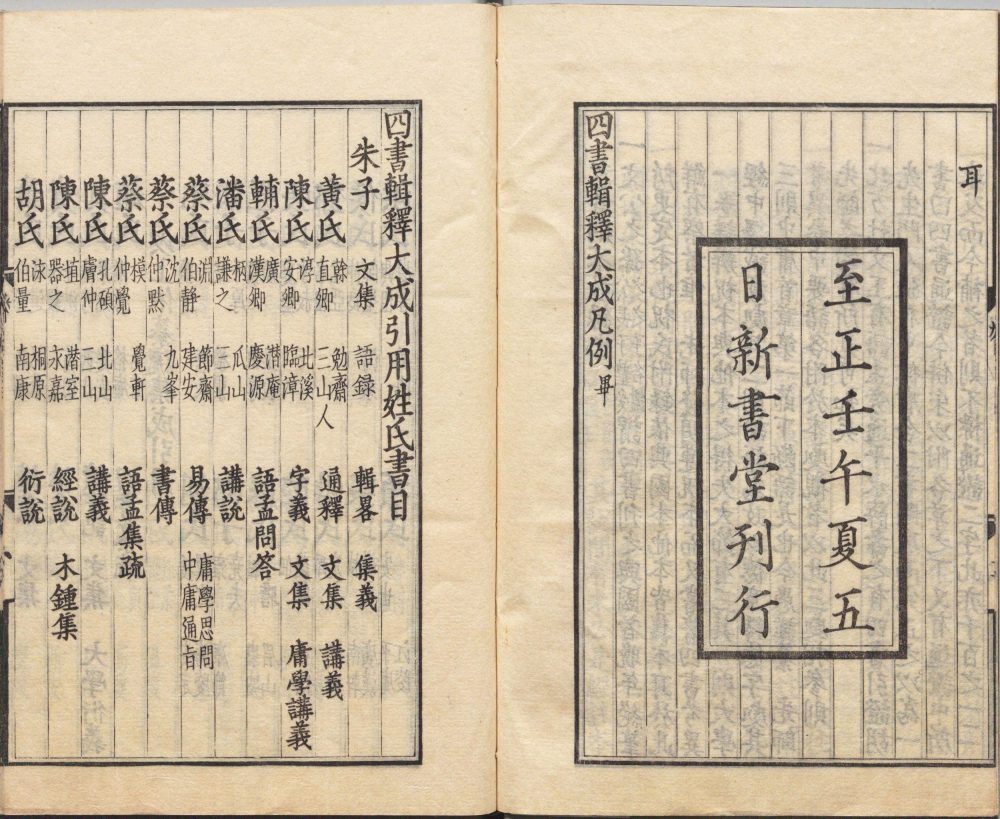 耳
至正壬午夏五
日新書堂刋行
四書輯釋大成凡例畢
四書輯釋大成引用姓氏書目
朱子 文集 語録 輯畧 集義
黃氏 榦 直卿 勉齋 三山人 通釋 文集 講義
陳氏 淳 安卿 北溪 臨漳 字義 文集 庸學講義
輔氏 廣 漢卿 潛庵 慶源 語孟問答
潘氏 柄 謙之 瓜山 三山 講說
蔡氏 淵 伯靜 節齋 建安 易傳 庸學思問 中庸通旨
蔡氏 沈 仲黙 九峯 書傳
蔡氏 模 仲覺 覺軒 語孟集疏
陳氏 孔碩 膚仲 北山 三山 講義
陳氏 埴 器之 潛室 永嘉 經說 木鍾集
胡氏 泳 伯量 桐原 南康 衍說